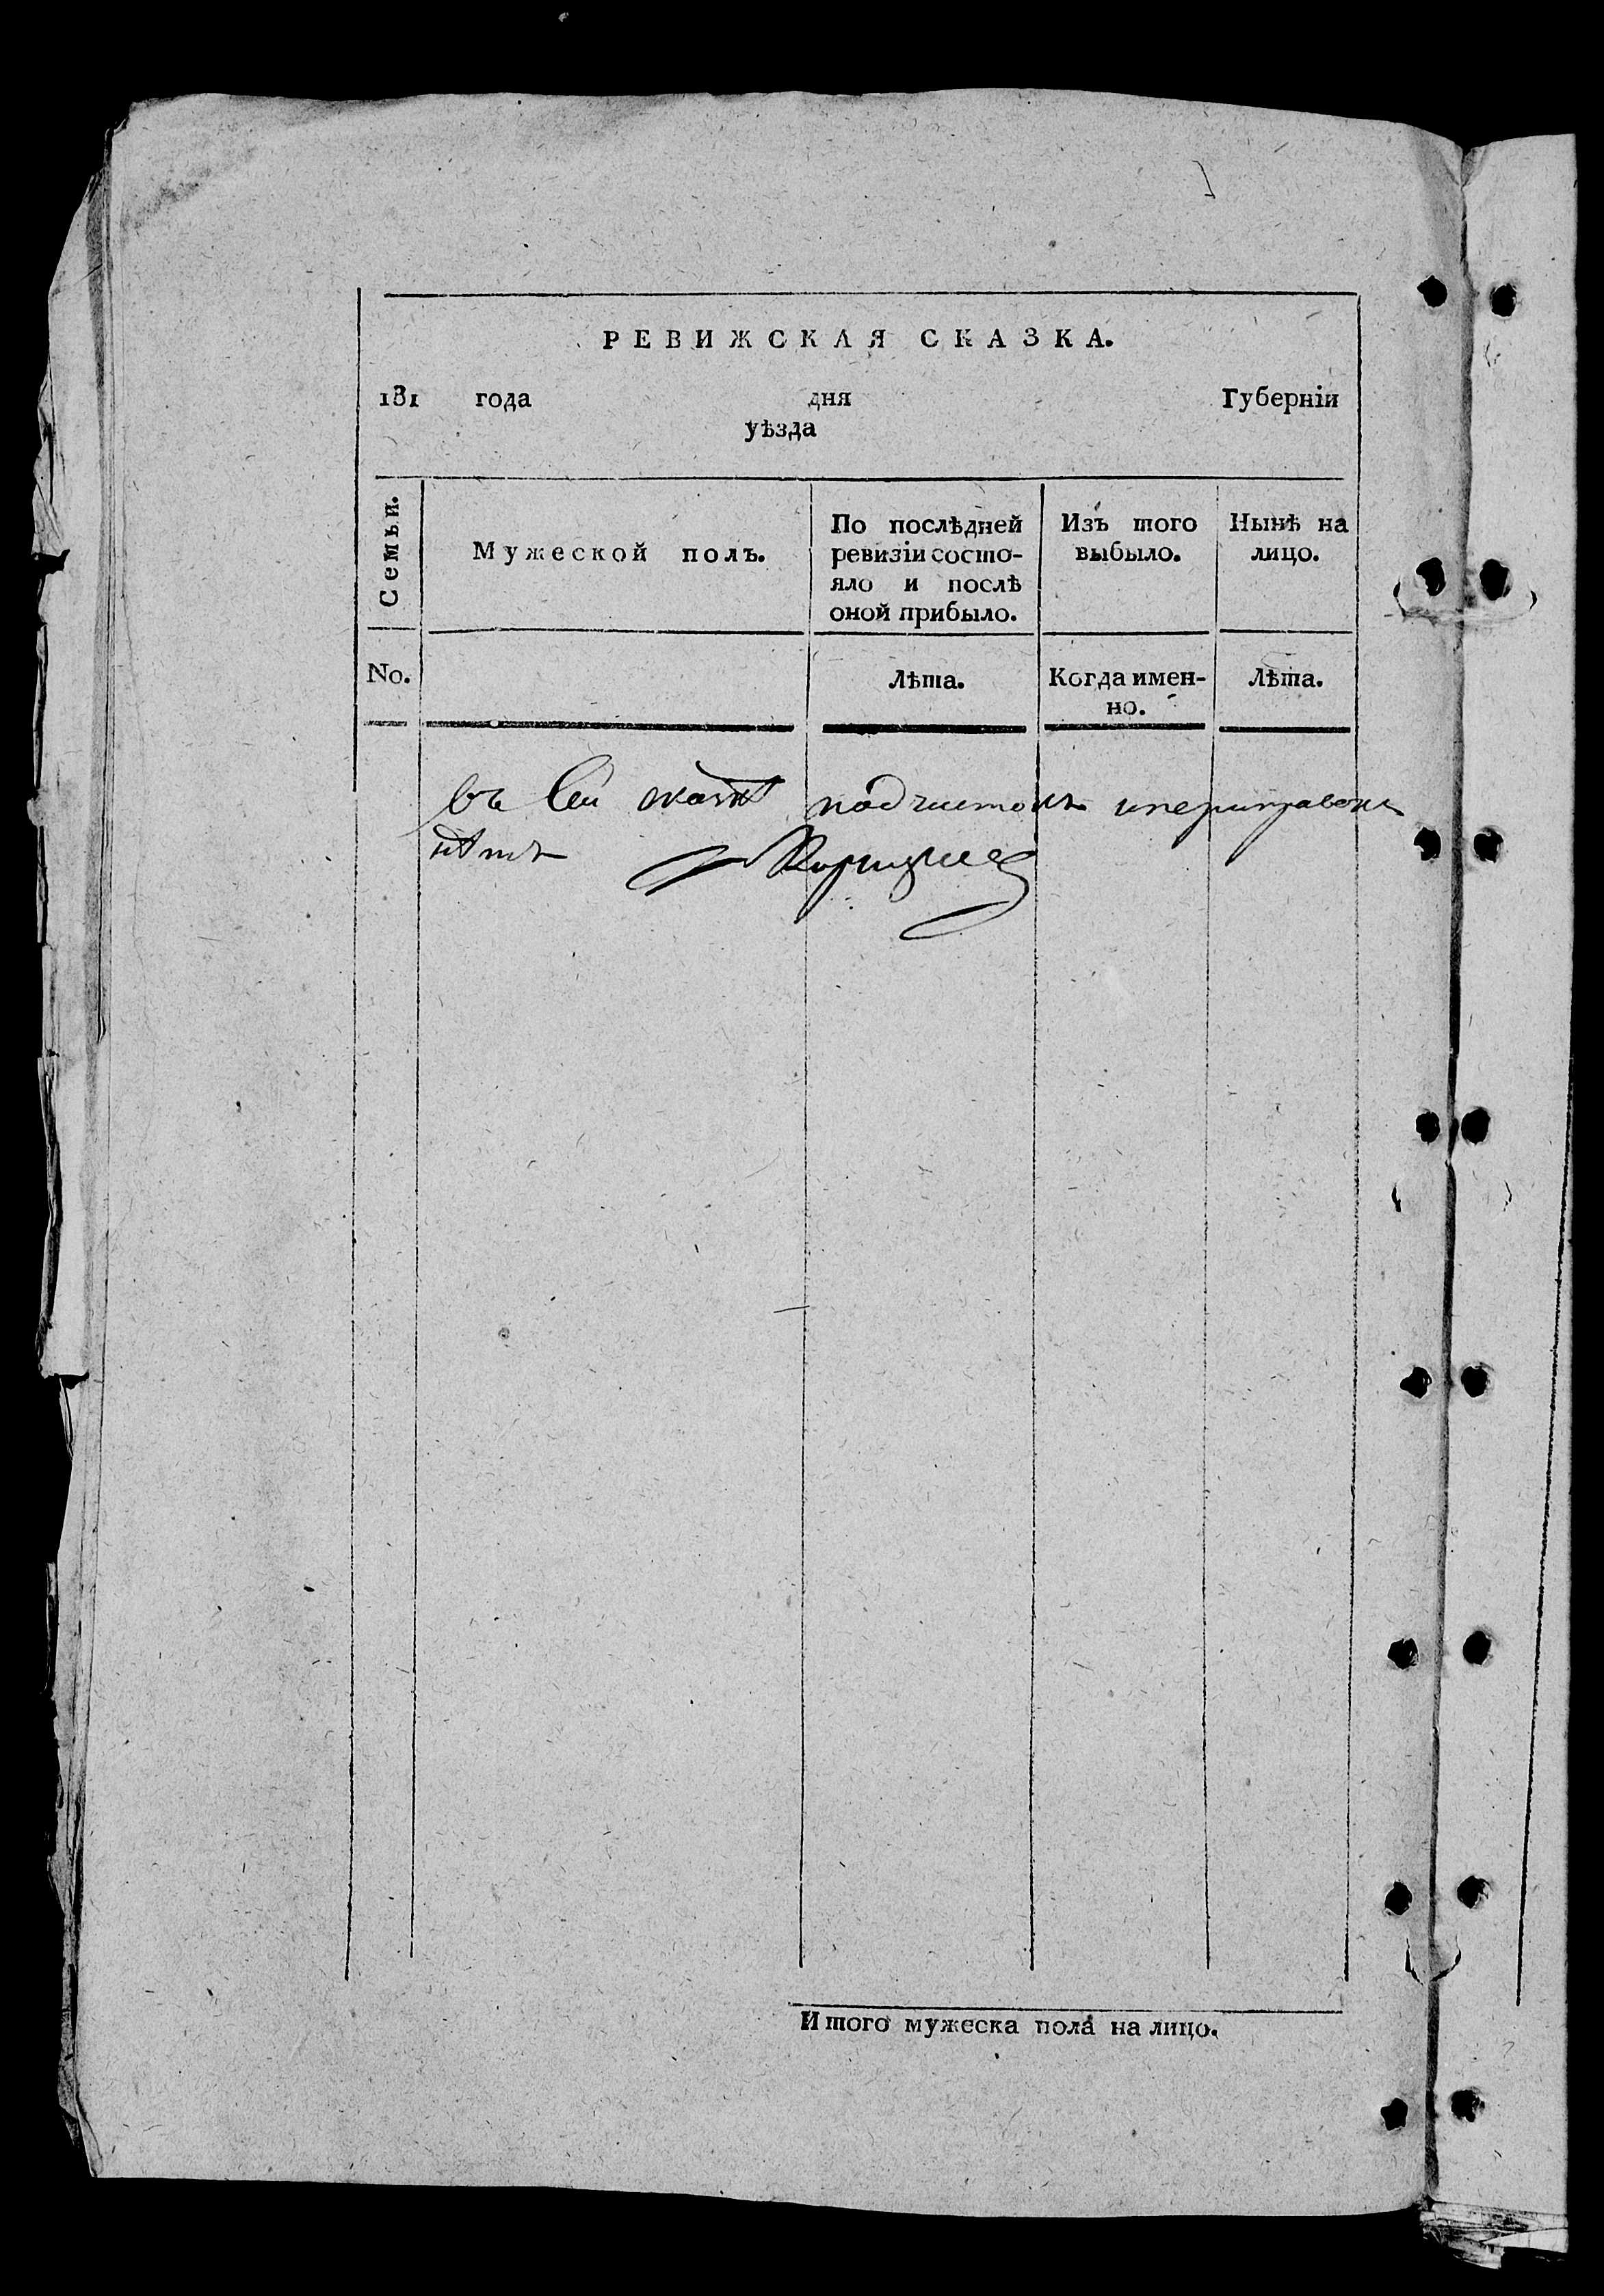 РЕВИЖСКАЯ СКАЗКА.
181 года дня Губерніи
уѣзда
Семьи.
Мужеской полъ.
По послѣдней
ревизіи состо-
яло и послѣ
оной прибыло.
Изъ того
выбыло.
Нынѣ на
лицо.
No.
Лѣта.
Когда имен-
но.
Лѣта.
въ сей сказкѣ подчистокъ ипериправокъ
нѣтъ
Итого мужеска пола на лицо.